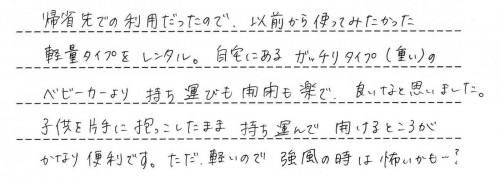 帰省先での利用だったので、以前から使ってみたかった
軽量タイプを レンタル。自宅にある ガッチリタイプ(重い)の
ベビーカーより 持ち運びも 開閉も 楽で、良いなと思いました。
子供を片手に 抱っこしたまま 持ち運んで 開けるところが
かなり 便利です。ただ、軽いので 強風の時は 怖いかも…?